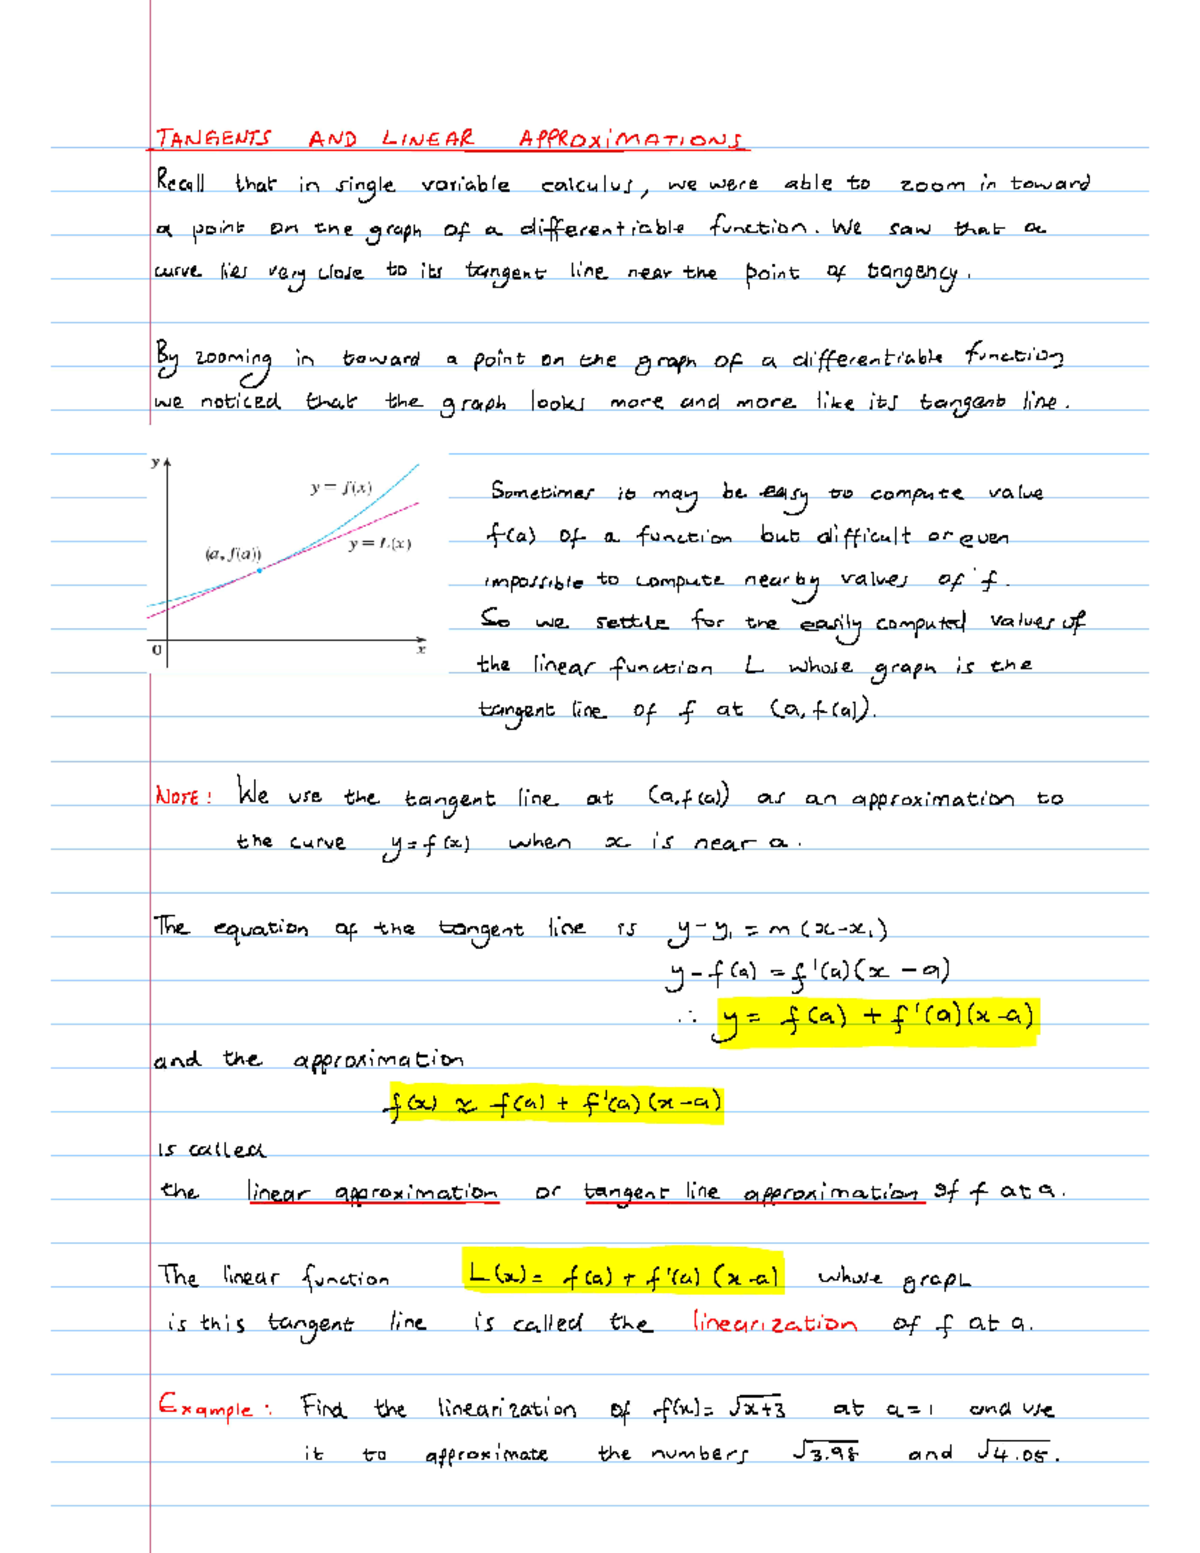 TANGENTS AND LINEAR APPROXIMATIONS
Recall that in single variable calculus, we were able to zoom in toward
a point on the graph of a differentiable function. We saw that a
curve lies very close to its tangent line near the point of tangency.
By zooming in toward a point on the graph of a differentiable function
we noticed that the graph looks more and more like its tangent line.
y
y = f(x)
y = L(x)
(a, f(a))
0
x
Sometimes it may be easy to compute value
f(a) of a function but difficult or even
impossible to compute nearby values of f.
So we settle for the easily computed values of
the linear function L whose graph is the
tangent line of f at (a, f(a)).
NOTE: We use the tangent line at (a, f(a)) as an approximation to
the curve y = f(x) when x is near a.
The equation of the tangent line is y - y₁ = m (x - x₁)
y - f(a) = f'(a)(x - a)
∴ y = f(a) + f'(a)(x-a)
and the approximation
f(x) ≈ f(a) + f'(a)(x-a)
is called
the linear approximation or tangent line approximation of f at a.
The linear function L(x) = f(a) + f'(a) (x-a) whose graph
is this tangent line is called the linearization of f at a.
Example: Find the linearization of f(x) = √(x+3) at a=1 and use
it to approximate the numbers √3.98 and √4.05.